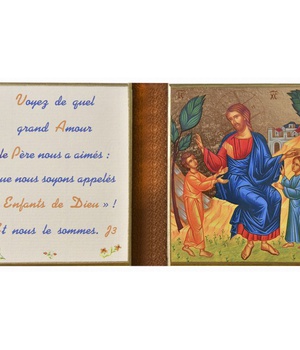 Voyez de quel
grand Amour
le Père nous a aimés :
que nous soyons appelés
Enfants de Dieu » !
Et nous le sommes. J3